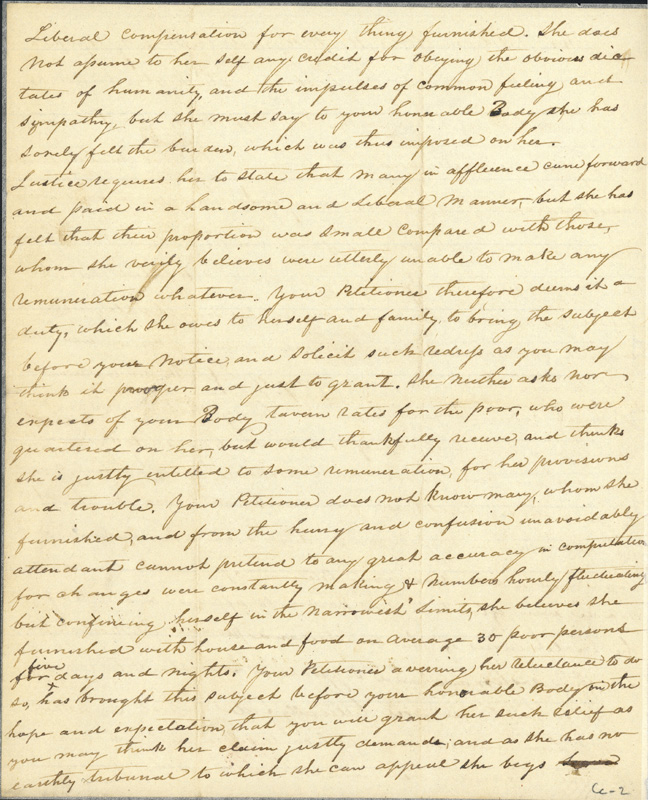 Liberal Compensation for every thing furnished. She does
not assume to her self any credit for obeying the obvious dic-
tates of humanity, and the impulses of common feeling and
sympathy, but she must say to your honorable Body she has
sorely felt the burden, which was thus imposed on her.
Justice requires her to state that many in affluence came forward
and paid in a handsome and Liberal manner, but she has
felt that their proportion was small compared with those,
whom she verily believes were utterly unable to make any
remuneration whatever. Your Petitioner therefore deems it a
duty, which she owes to herself and family, to bring the subject
before your Notice, and Solicit such redress as you may
think it proper and just to grant. She neither asks nor
expects of your Body tavern rates for the poor, who were
quartered on her, but would thankfully receive, and thinks
she is justly entitled to some remuneration, for her provisions
and trouble. Your Petitioner does not know many, whom she
furnished, and from the hurry and confusion unavoidably
attendant cannot pretend to any great accuracy in computation
for changes were constantly making & Numbers hourly fluctuating
but confining herself in the Narrowest Limits, she believes she
furnished with house and food on average 30 poor persons
five
for days and nights. Your Petitioner averring her reluctance to do
so, has brought this subject before your honorable Body in the
hope and expectation, that you will grant her such relief as
you may think her claim justly demands, and as she has no
earthly tribunal to which she can appeal she begs
Ce-2